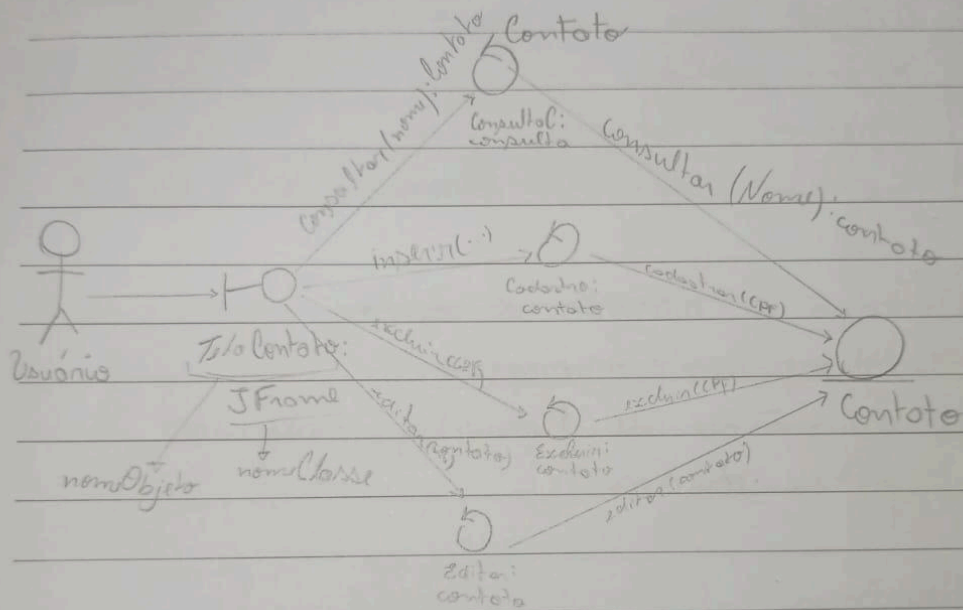 Contato
consultar(nome):Contato
ConsultaC:
consulta
Consultar (Nome):contato
inserir(..)
Cadastro:
contato
cadastrar(CPF)
Usuário
TelaContato:
JFrame
nomeObjeto
nomeClasse
excluir(CPF)
Excluir:
contato
excluir(CPF)
Contato
editar(contato)
Editar:
contato
editar(contato)